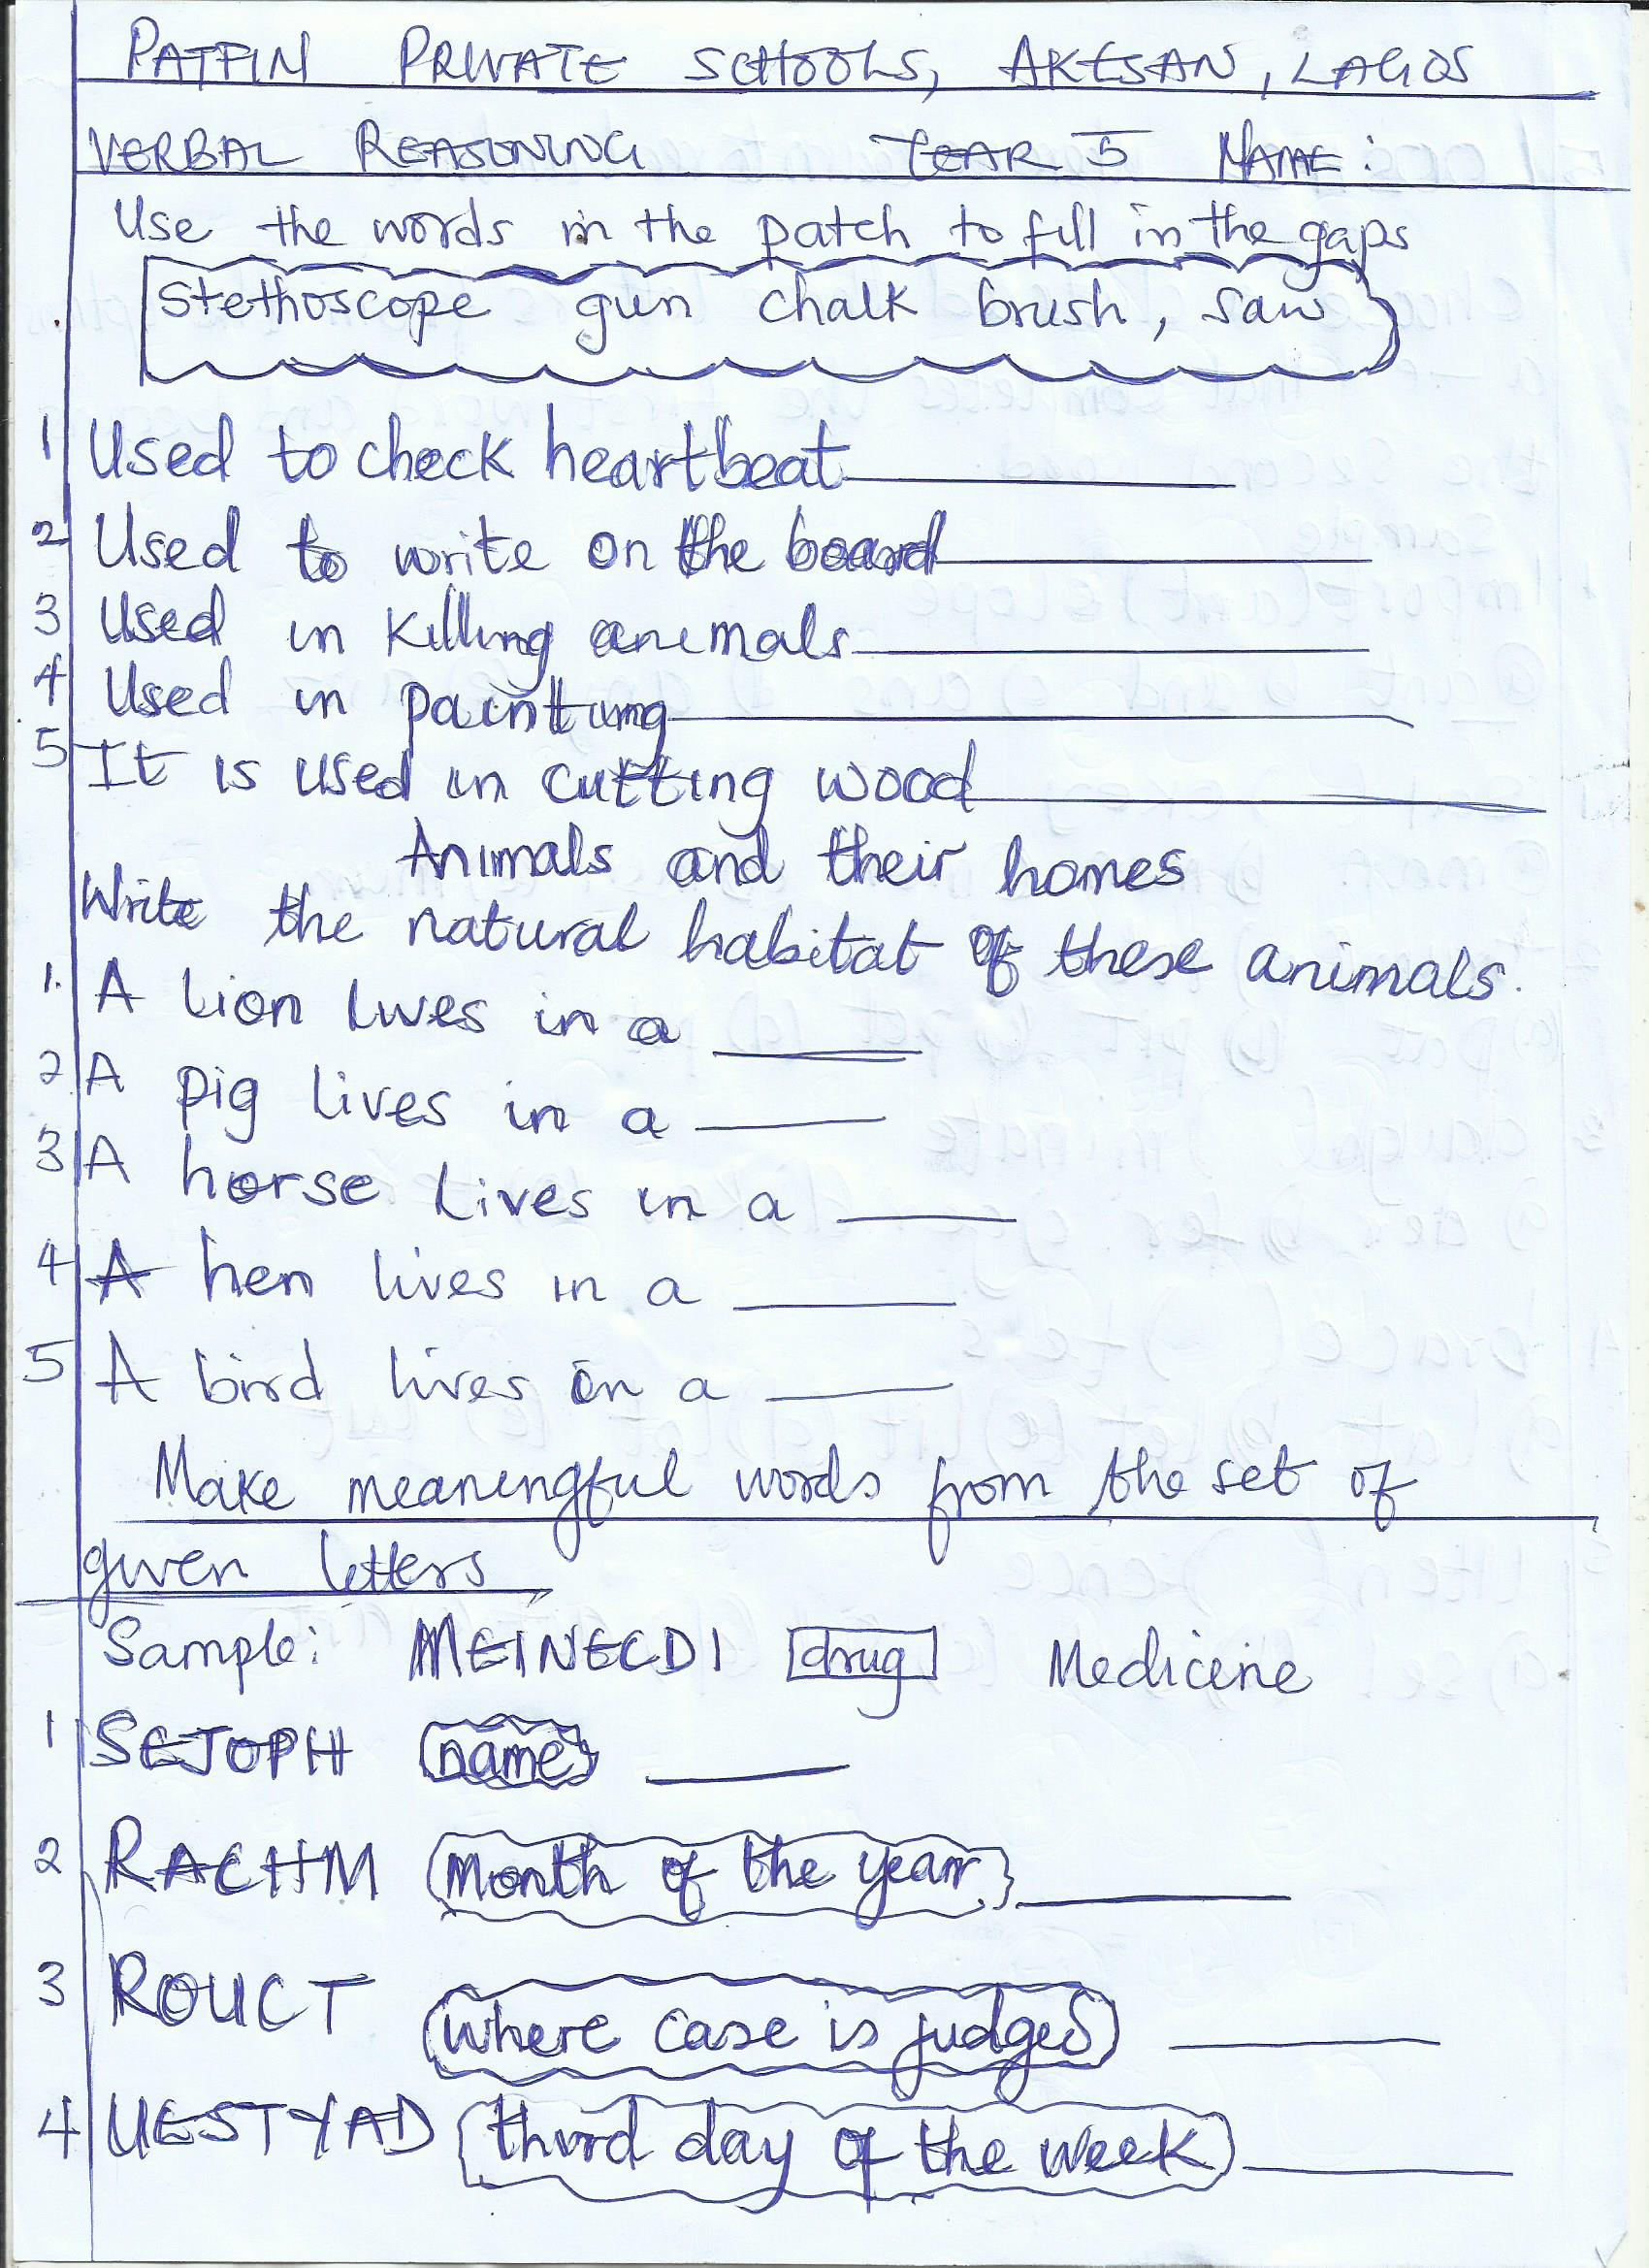 PATFIN PRIVATE SCHOOLS, AKESAN, LAGOS
VERBAL REASONING YEAR 5 NAME:
Use the words in the patch to fill in the gaps
Stethoscope gun chalk brush, saw
1 Used to check heartbeat
2 Used to write on the board
3 Used in killing animals
4 Used in painting
5 It is used in cutting wood
Animals and their homes
Write the natural habitat of these animals.
1. A Lion lives in a
2 A pig lives in a
3 A horse lives in a
4 A hen lives in a
5 A bird lives in a
Make meaningful words from the set of
given letters
Sample: MEINECDI drug Medicine
1 SEJOPH name
2 RACHM Month of the year.
3 ROUCT where case is judged
4 UESTYAD third day of the week